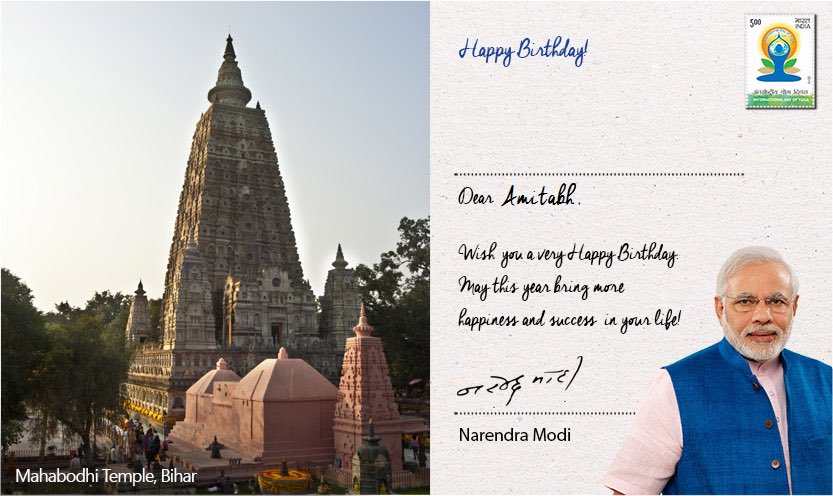 Happy Birthday!
5.00 भारत INDIA
अन्तर्राष्ट्रीय योग दिवस
INTERNATIONAL DAY OF YOGA
Dear Amitabh,
Wish you a very Happy Birthday.
May this year bring more
happiness and success in your life!
नरेन्द्र मोदी
Narendra Modi
Mahabodhi Temple, Bihar